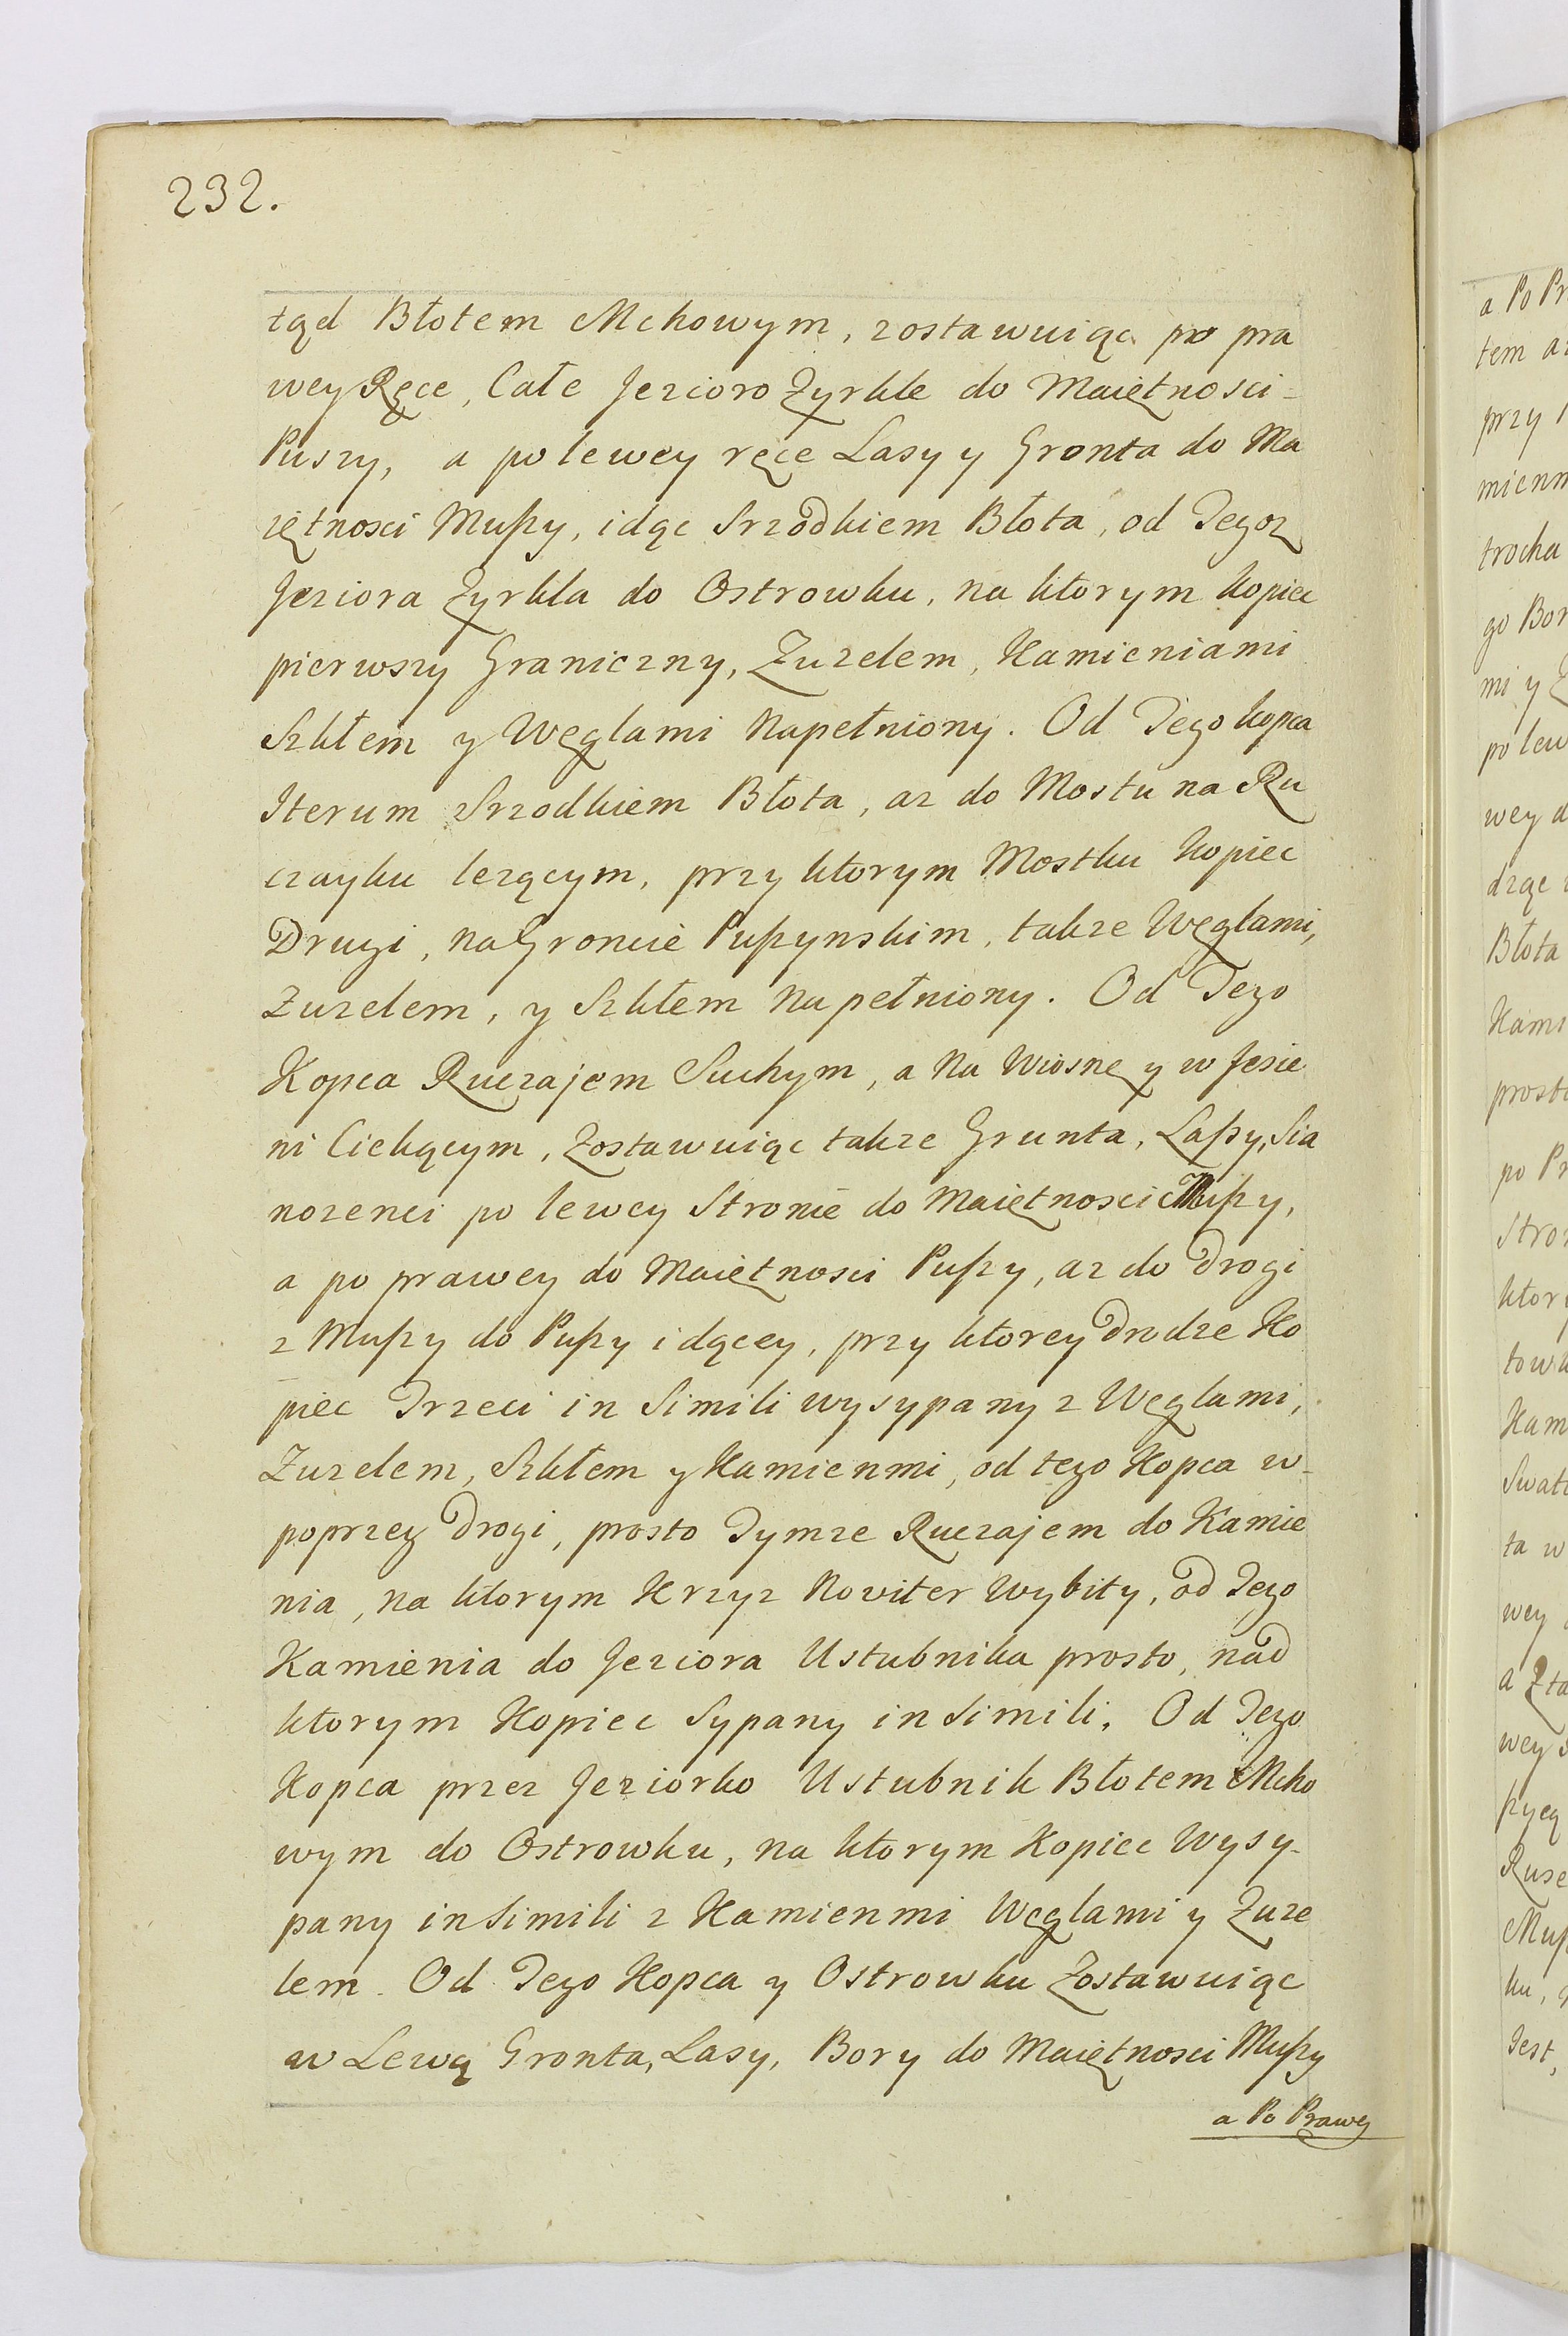 232.
tąd Błotem Mchowym, zostawuiąc po pra
wey Ręce, Całe Jezioro Zyrkle do Maiętnosci-
Puszy, a po lewey ręce Lasy y Gronta do Ma
iętnosci Mußzy, idąc Srzodkiem Błota, od Tegoz
Jeziora Zyrkla do Ostrowku, na ktorym kopiec
pierwszy Graniczny, Zuzelem, Kamieniami
Szkłem y Węglami Napełniony. Od Tego kopca
Iterum Srzodkiem Błota, az do Mostu na Ru
czayku lezącym, przy ktorym Mostku kopiec
Drugi, na Groncie Pußzynskim, takze Węglami,
Zuzelem, y Szkłem Napełniony. Od Tego
Kopca Ruczajem Suchym, a Na Wiosnę y w Jesie
ni Ciekącym, Zostawuiąc takze Grunta, Laßy, Sia
nozenci po lewey Stronie do Maiętnosci Mußzy,
a po prawey do Maiętnosci Pußzy, az do Drogi
z Mußzy do Pußzy idącey, przy ktorey Drodze Ko
piec Trzeci in Simili wysypany z Węglami,
Zuzelem, Szkłem y Kamienmi, od tego Kopca w-
poprzez Drogi, prosto Tymze Ruczajem do Kamie
nia, na ktorym Krzyz Noviter Wybity, od Tego
Kamienia do Jeziora Ustubnika prosto, nad
ktorym Kopiec Sypany in Simili. Od Tego
Kopca przez Jeziorko Ustubnik Błotem Mcho
wym do Ostrowku, na ktorym Kopiec Wysy-
pany in Simili z Kamienmi Węglami y Zuze
lem. Od Tego Kopca y Ostrowku Zostawuiąc
w Lewą Gronta, Lasy, Bory do Maiętnosci Mußzy
a Po Prawey
a Po Pr
tem a
przy
mienm
trocha
go Bor
mi y
po lew
wey d
drąc
Błota
Kami
prost
po Pr
Stron
ktory
towk
Kam
Swat
ta w
wey
a Zta
wey
ßzycą
Ruse
Muß
ku,
Jest,